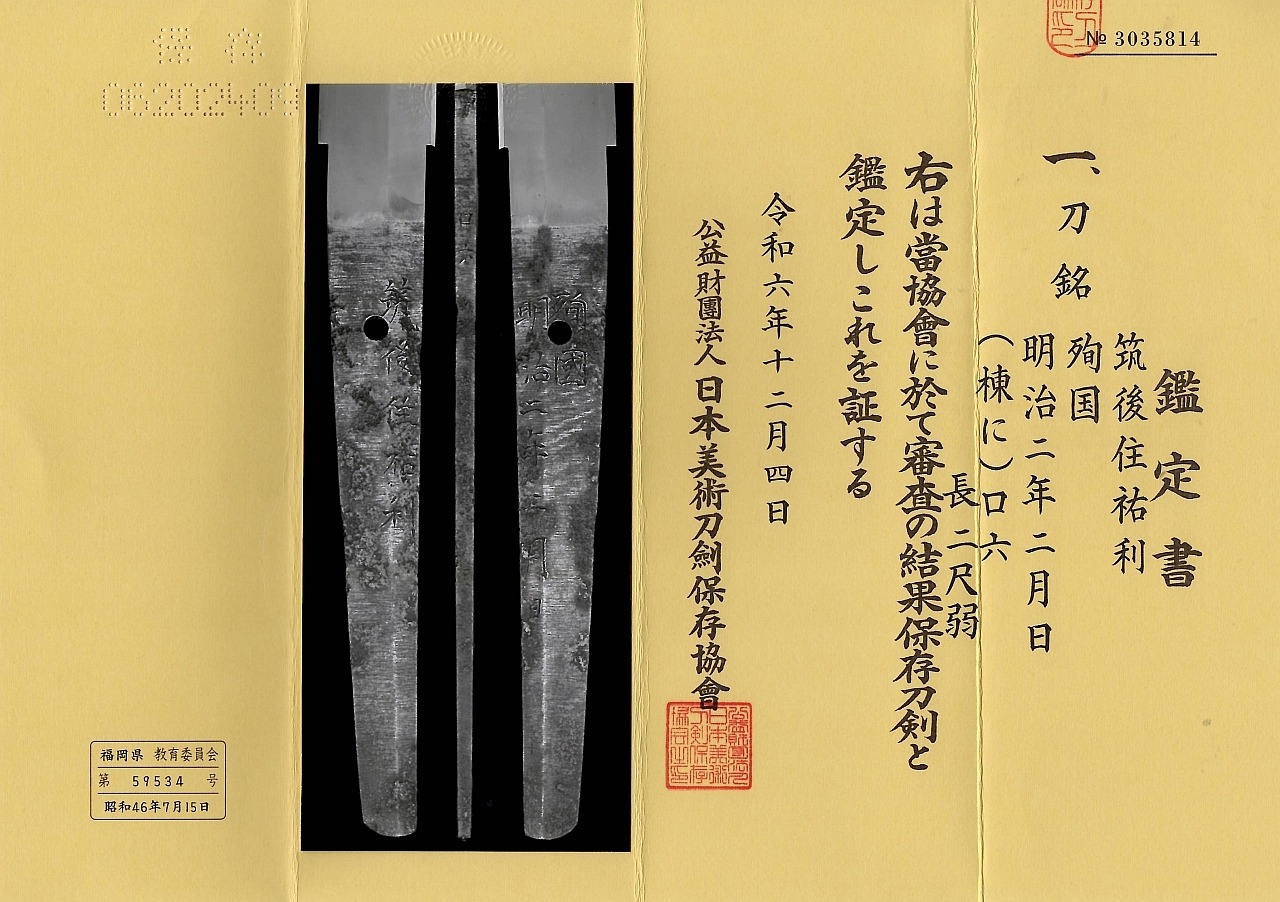 № 3035814
鑑定書
一、刀 銘 筑後住祐利
殉国
明治二年二月日
(棟に)口六
長 二尺弱
右は當協會に於て審査の結果保存刀剣と
鑑定しこれを証する
令和六年十二月四日
公益財團法人日本美術刀劍保存協會
筑後住祐利
口六
殉國
明治二年二月日
保存
福岡県 教育委員会
第 59534 号
昭和46年7月15日